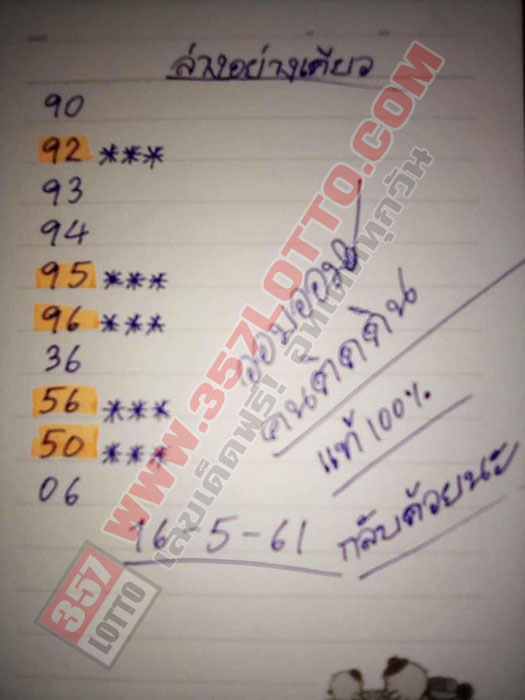 ล่างอย่างเดียว
90
92 ***
93
94
95 ***
96 ***
36
56 ***
50 ***
06
ออมออม
คนติดดิน
แท้ 100%
กลับด้วยนะ
16-5-61
WWW.357LOTTO.COM
เลขเด็ดฟรี! อัพเดททุกวัน
357
LOTTO